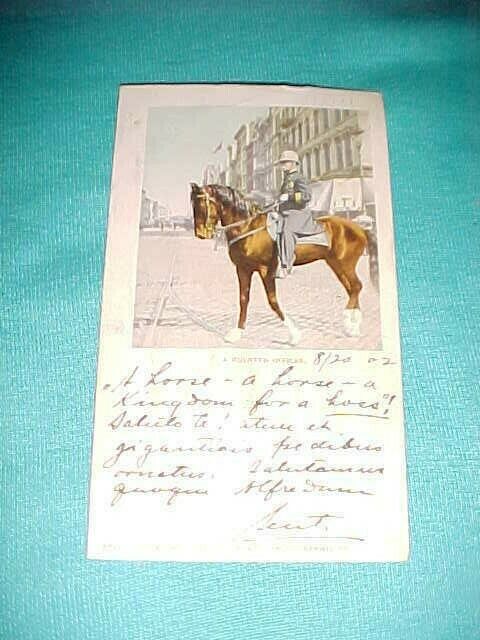 A MOUNTED OFFICER. 8/20 02
"A horse - a horse - a
Kingdom for a hoss"!
Saluto te! item et
gigantiais pedibus
ornatus. Salutamus
quoque Alfredum